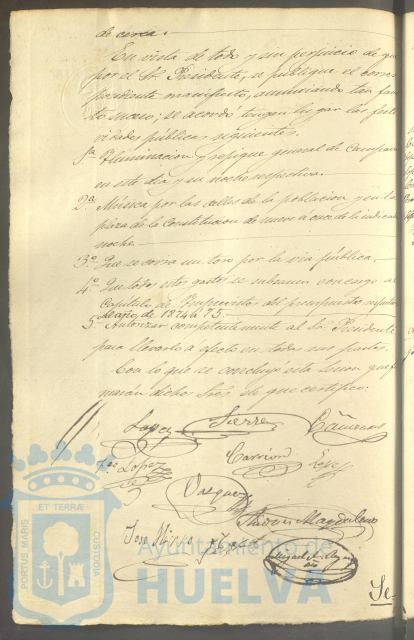 de cerca.
En vista de todo y sin perjuicio de que
por el Sr. Presidente, se publique el corres
pondiente manifiesto, anunciando tan faus
to suceso; se acordó tengan lugar las festi
vidades públicas siguientes.
1ª Iluminacion y repique general de campanas
en este dia y su noche respectiva.
2ª Música por las calles de la poblacion y en la
plaza de la Constitucion de nueve a once de la indicada
noche.
3º Que se corra un toro por la via pública.
4º Que todos estos gastos se sufraguen con cargo al
Capitulo de Imprevistos del presupuesto
del año de 1874 á 75.
5º Autorizar competentemente al Sr. Presidente
para llevarlo á efecto en todas sus partes.
Con lo que se concluyó esta sesion que fir
marán dichos Sres. de que certifico.
Lopez Sierra
Lopez Carrion
Vazquez
Jose
ET TERRÆ
PORTUS MARIS CUSTODIA
Ayuntamiento de
HUELVA
Se